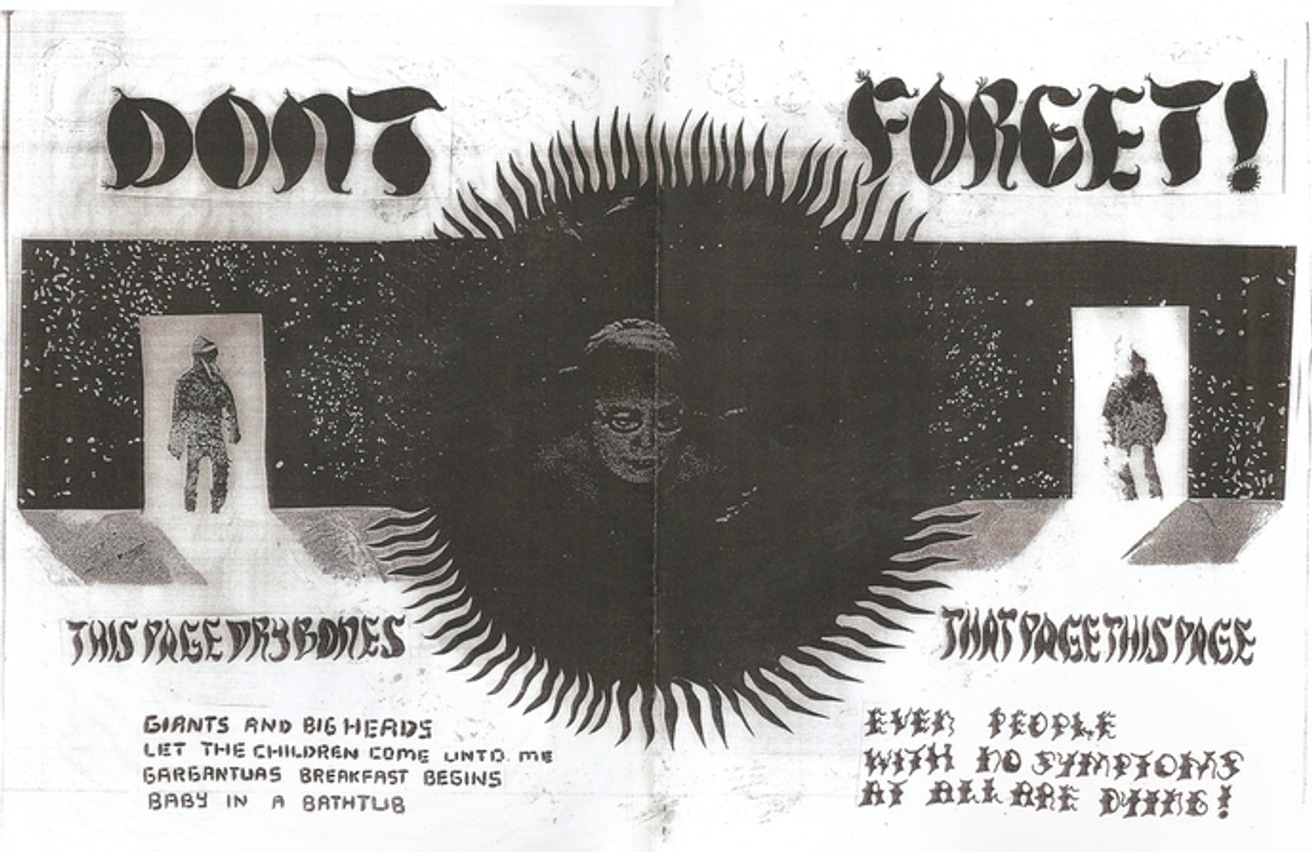 DONT FORGET!
THIS PAGE DRY BONES
THAT PAGE THIS PAGE
GIANTS AND BIG HEADS
LET THE CHILDREN COME UNTO ME
GARGANTUAS BREAKFAST BEGINS
BABY IN A BATHTUB
EVEN PEOPLE
WITH NO SYMPTOMS
AT ALL ARE DYING!